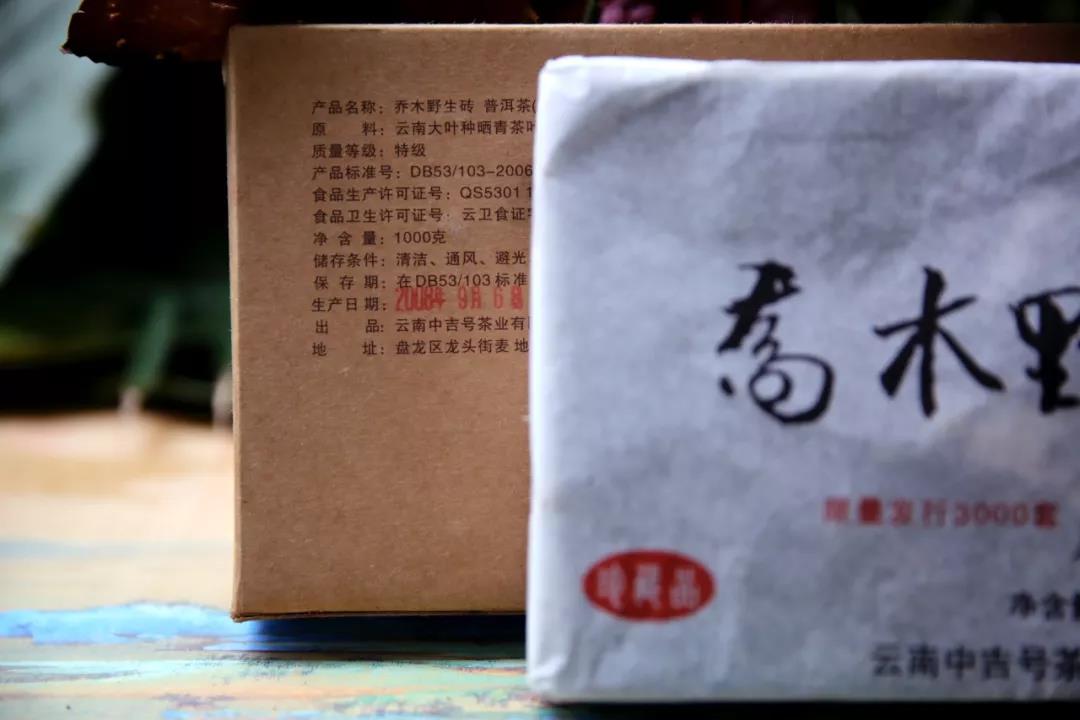 产品名称：乔木野生砖 普洱茶(
原 料：云南大叶种晒青茶叶
质量等级：特级
产品标准号：DB53/103-2006
食品生产许可证号：QS5301 1
食品卫生许可证号：云卫食证字
净 含 量：1000克
储存条件：清洁、通风、避光
保 存 期：在DB53/103标准
生产日期：2008年 9月 6日
出 品：云南中吉号茶业有限
地 址：盘龙区龙头街麦地
喬木野
限量发行3000套
珍藏品
净含量
云南中吉号茶